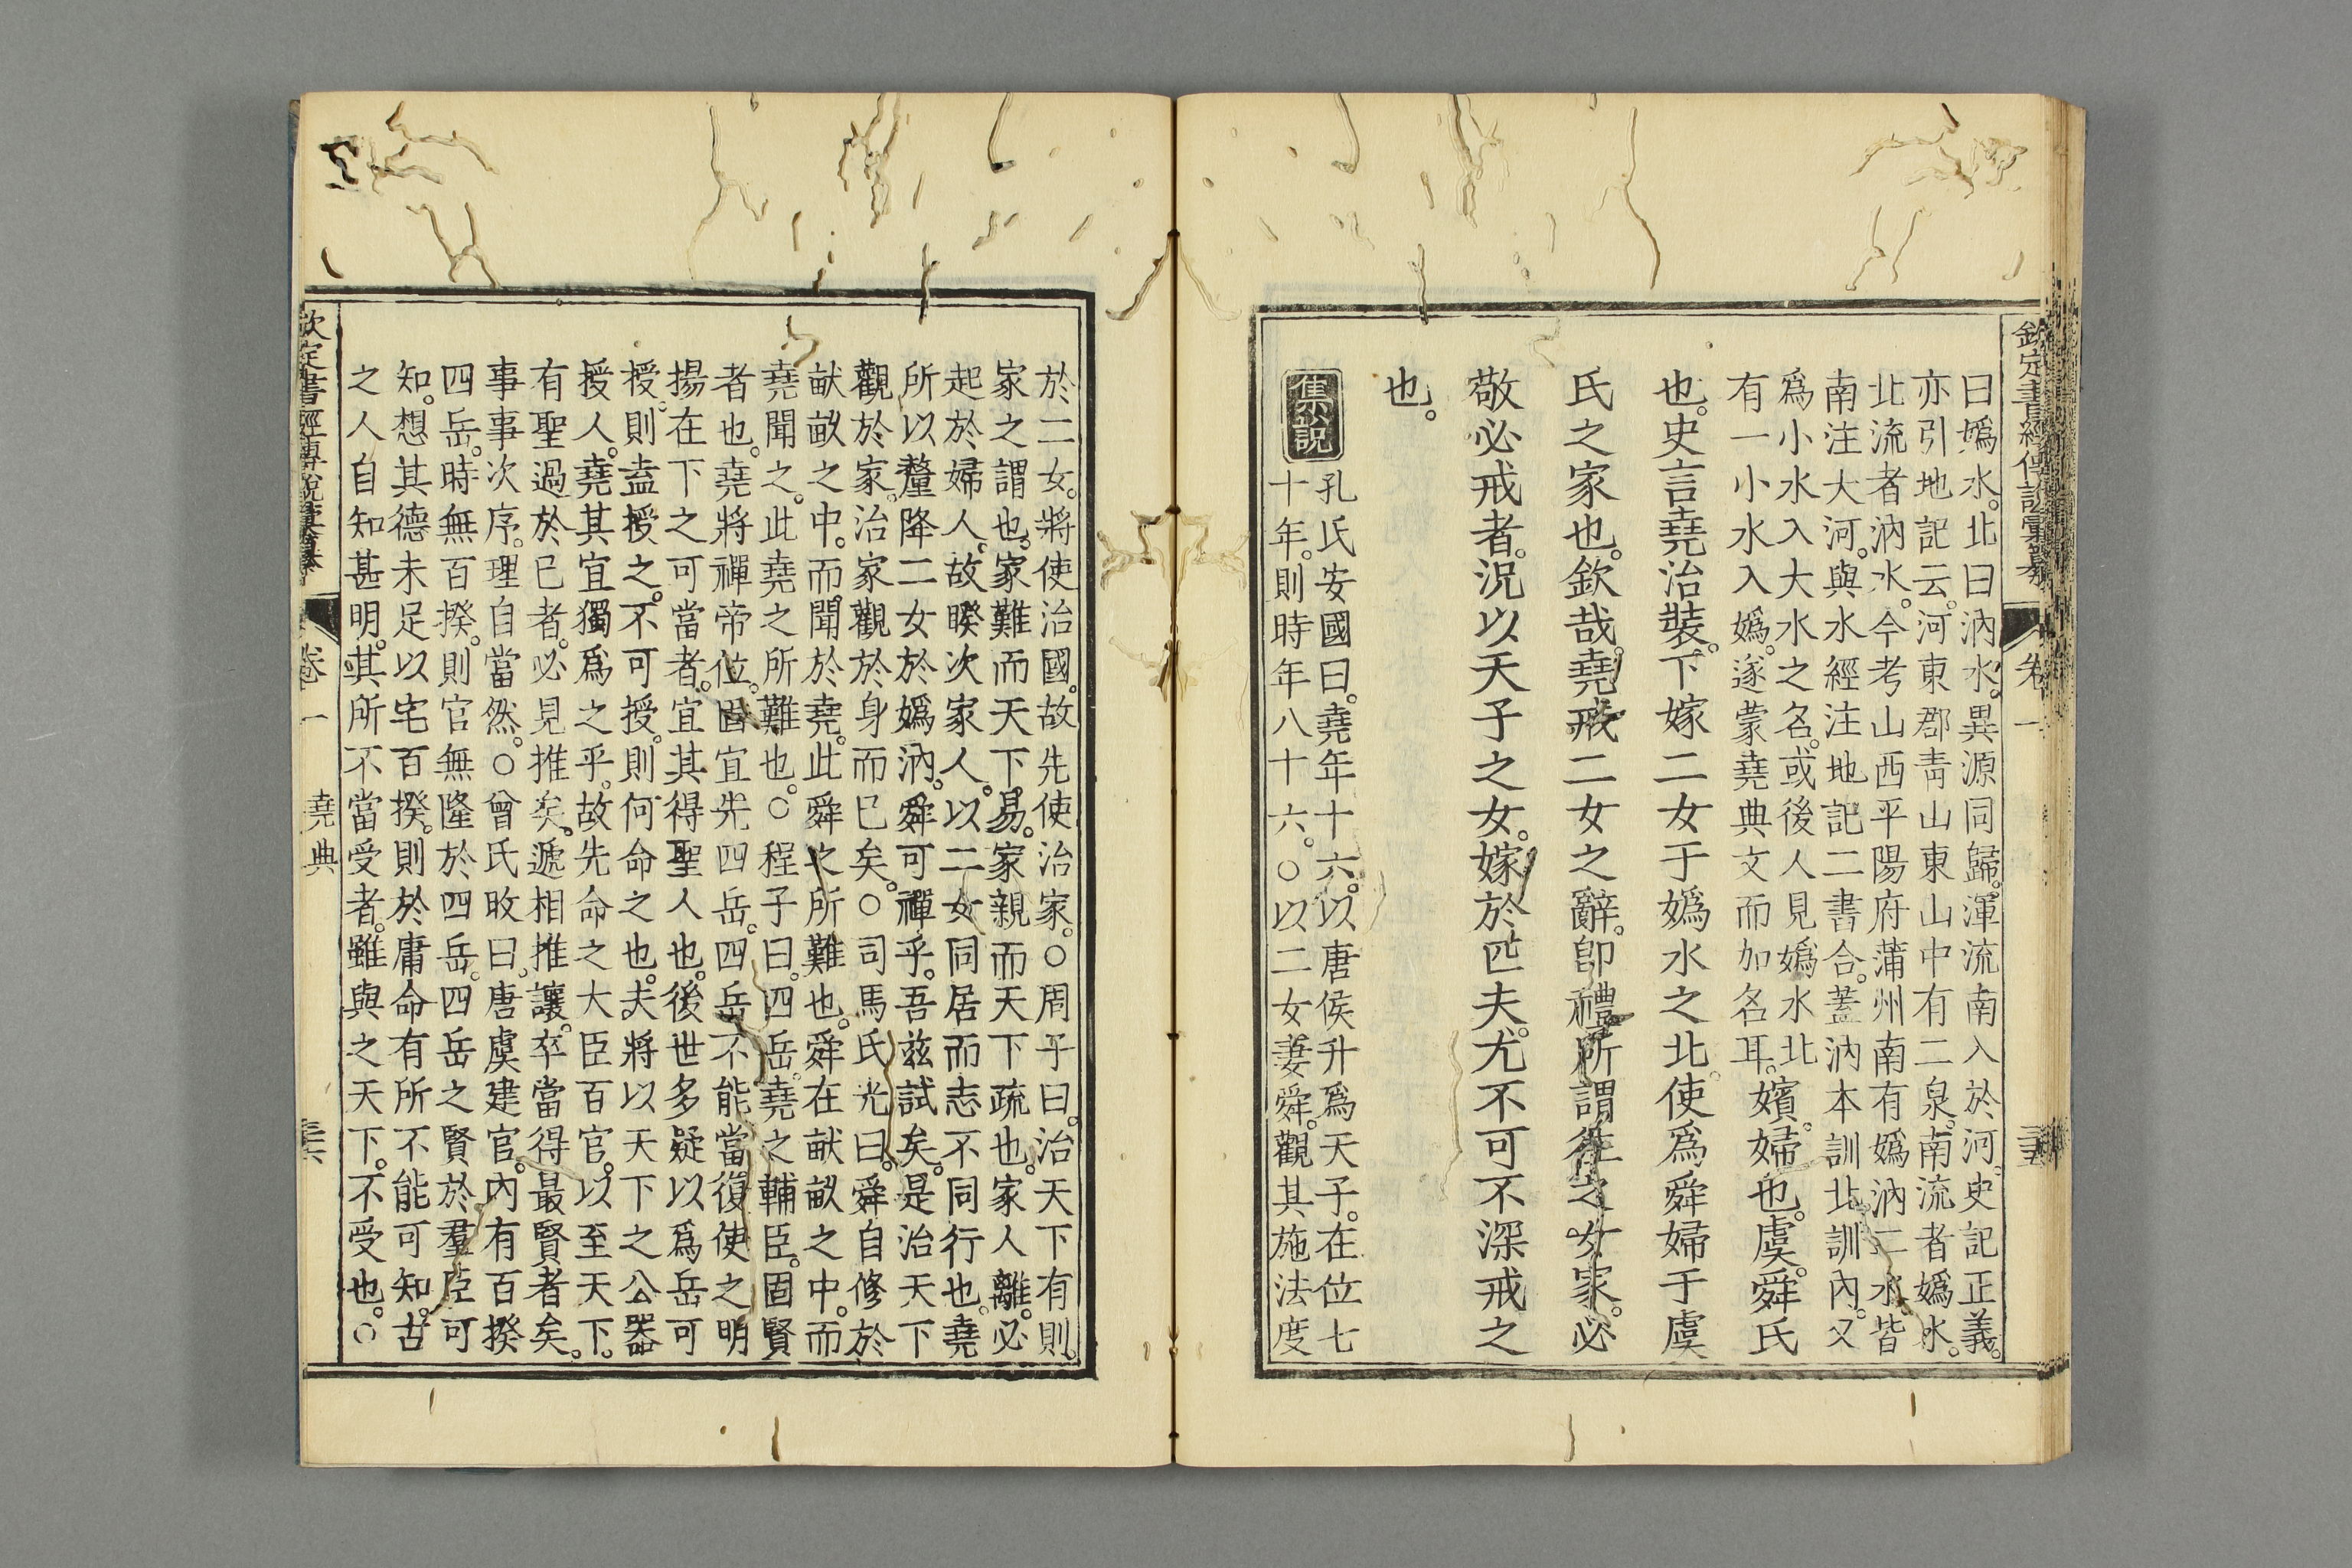 欽定書經傳說彙纂
卷一
三五
曰嬀水。北曰汭水。異源同歸。渾流南入於河。史記正義。
亦引地記云。河東郡靑山東山中有二泉。南流者嬀水。
北流者汭水。今考山西平陽府蒲州南有嬀汭二水皆
南注大河。與水經注地記二書合。蓋汭本訓北訓內。又
爲小水入大水之名。或後人見嬀水北
有一小水入嬀。遂蒙堯典文而加名耳。嬪。婦也。虞。舜氏
也。史言堯治裝。下嫁二女于嬀水之北。使爲舜婦于虞
氏之家也。欽哉。堯戒二女之辭。卽禮所謂往之女家。必
敬必戒者。況以天子之女。嫁於匹夫。尤不可不深戒之
也。
集說
孔氏安國曰。堯年十六。以唐侯升爲天子。在位七
十年。則時年八十六。○以二女妻舜。觀其施法度
於二女。將使治國。故先使治家。○周子曰。治天下有則。
家之謂也。家難而天下易。家親而天下疏也。家人離。必
起於婦人。故睽次家人。以二女同居而志不同行也。堯
所以釐降二女於嬀汭。舜可禪乎。吾兹試矣。是治天下
觀於家。治家觀於身而已矣。○司馬氏光曰。舜自修於
畎畝之中。而聞於堯。此舜之所難也。舜在畎畝之中。而
堯聞之。此堯之所難也。○程子曰。四岳。堯之輔臣。固賢
者也。堯將禪帝位。固宜先四岳。四岳不能當。復使之明
揚在下之可當者。宜其得聖人也。後世多疑以爲岳可
授。則盍授之。不可授。則何命之也。夫將以天下之公器
授人。堯其宜獨爲之乎。故先命之大臣百官。以至天下。
有聖過於已者。必見推矣。遞相推讓。卒當得最賢者矣。
事事次序。理自當然。○曾氏旼曰。唐虞建官。內有百揆
四岳。時無百揆。則官無隆於四岳。四岳之賢於羣臣可
知。想其德未足以宅百揆。則於庸命有所不能可知。古
之人自知甚明。其所不當受者。雖與之天下。不受也。○
欽定書經傳說彙纂
卷一
堯典
三六